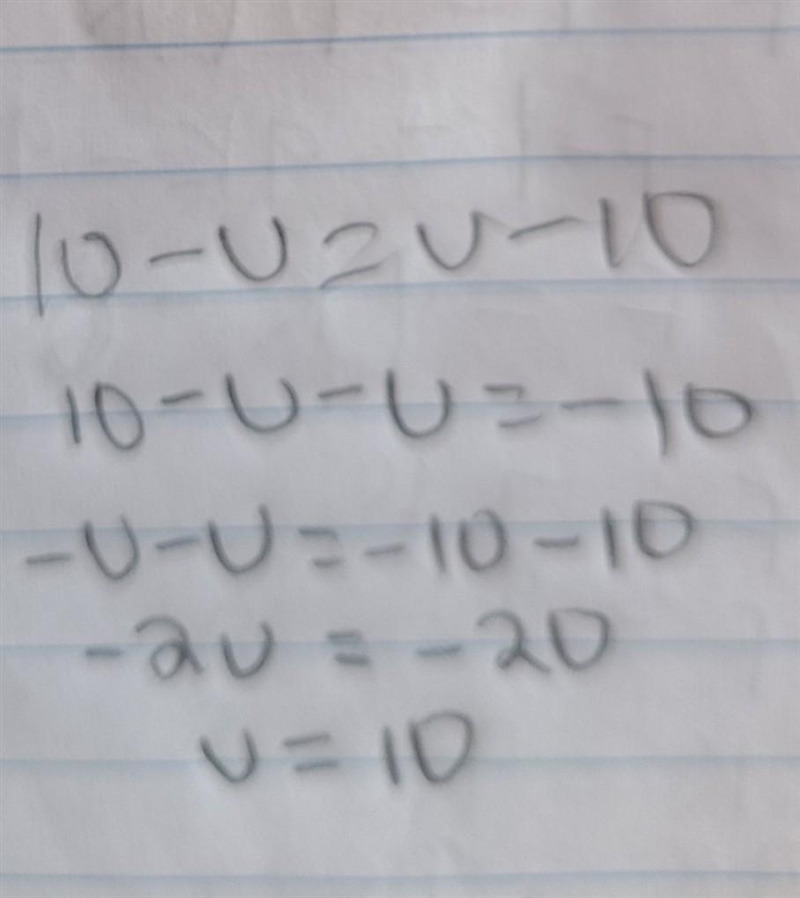 10 - U = U - 10
10 - U - U = - 10
- U - U = - 10 - 10
- 2U = - 20
U = 10